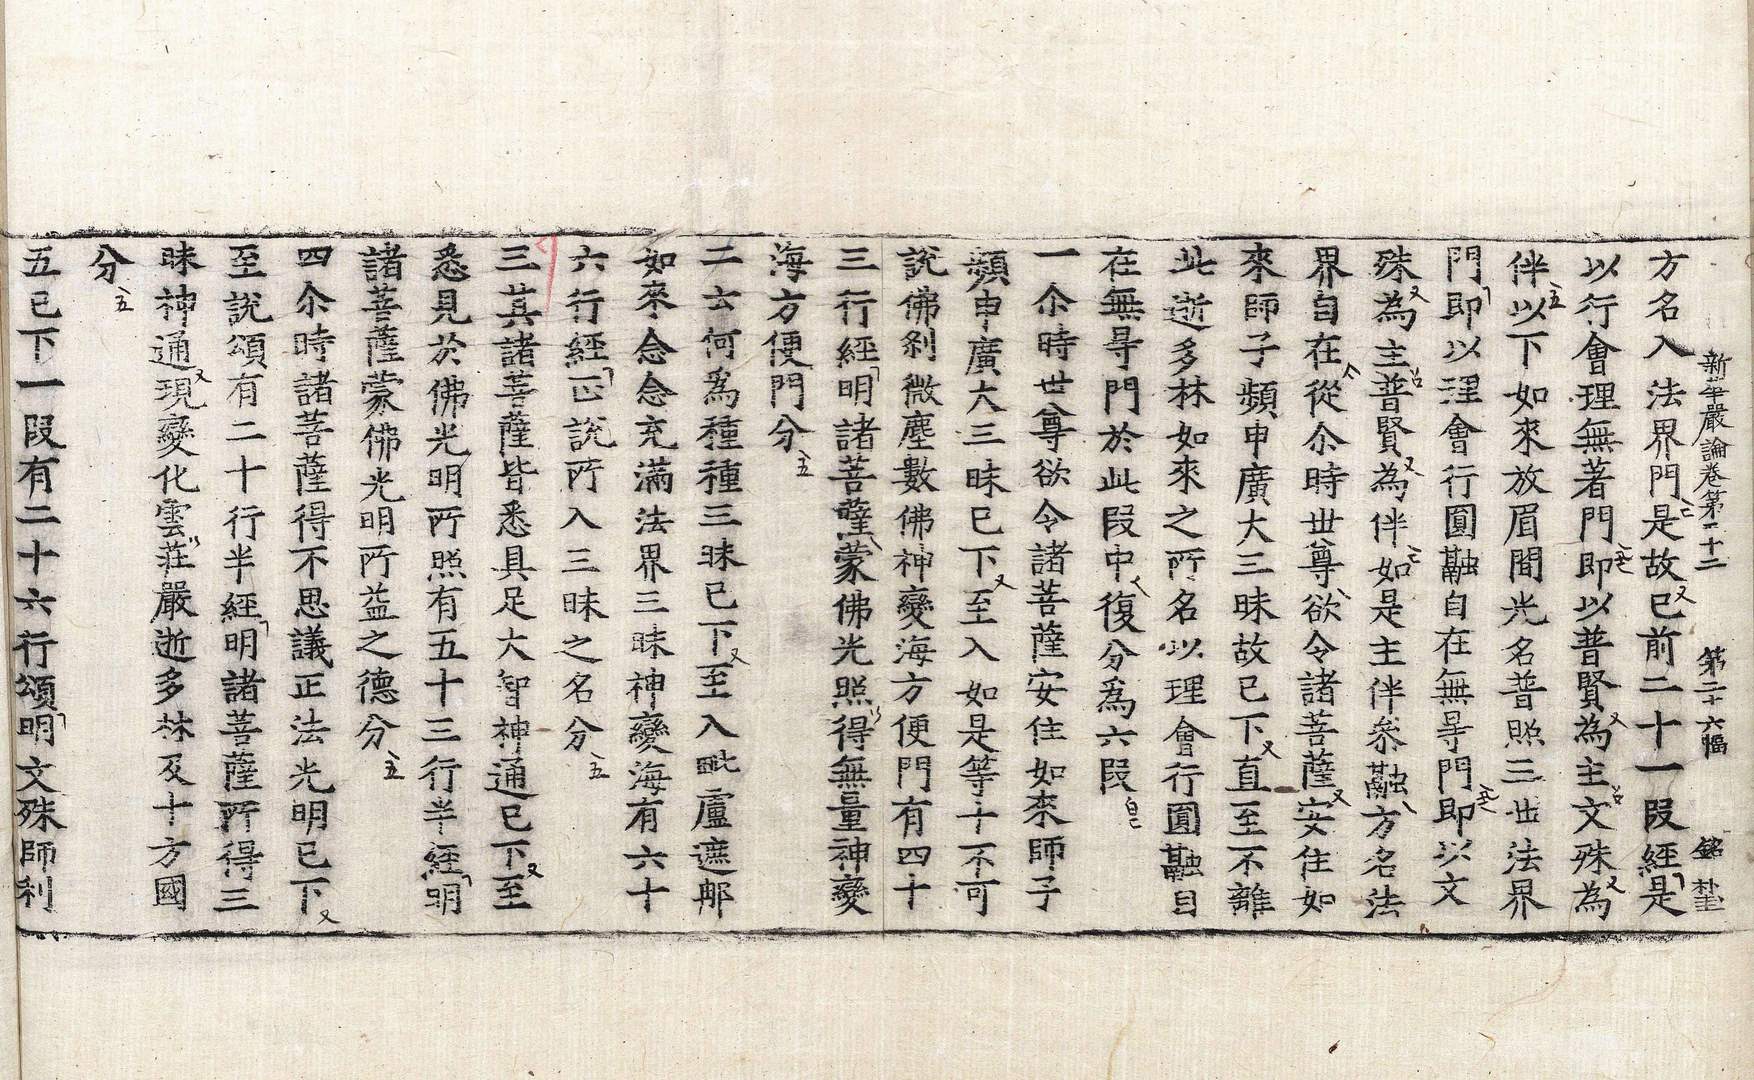 新華嚴論卷第三十二　第二十六幅　銘　杜
方名入法界門是故已前二十一段經是
以行會理無著門即以普賢為主文殊為
伴以下如來放眉間光名普照三世法界
門即以理會行圓融自在無㝵門即以文
殊為主普賢為伴如是主伴叅融方名法
界自在從尒時世尊欲令諸菩薩安住如
來師子頻申廣大三昧故已下直至不離
此逝多林如來之所名以理會行圓融自
在無㝵門於此段中復分爲六段
一尒時世尊欲令諸菩薩安住如來師子
頻申廣大三昧已下至入如是等十不可
說佛剎微塵數佛神變海方便門有四十
三行經明諸菩薩蒙佛光照得無量神變
海方便門分
二云何爲種種三昧已下至入毗盧遮那
如來念念充滿法界三昧神變海有六十
六行經正說所入三昧之名分
三其諸菩薩皆悉具足大智神通已下至
悉見於佛光明所照有五十三行半經明
諸菩薩蒙佛光明所益之德分
四尒時諸菩薩得不思議正法光明已下
至說頌有二十行半經明諸菩薩所得三
昧神通現變化雲莊嚴逝多林及十方國
分
五已下一段有二十六行頌明文殊師利